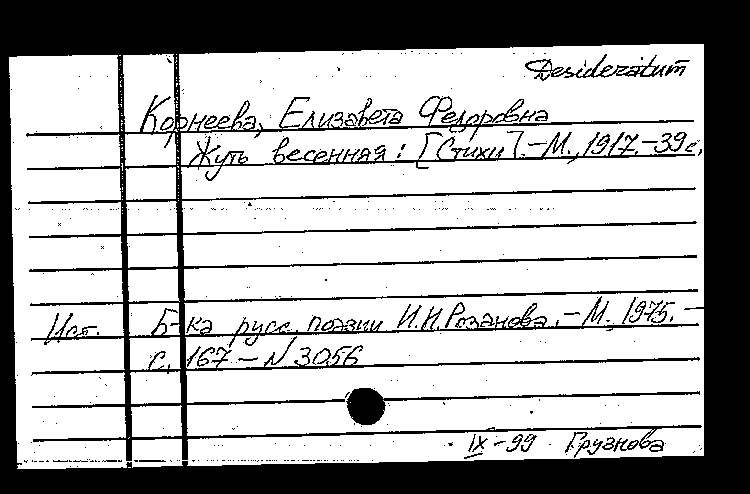 Desideratum
Корнеева, Елизавета Федоровна
Жуть весенняя: [Стихи]. - М., 1917. - 39 с.
Ист. Б-ка русс. поэзии И.Н. Розанова. - М., 1975. -
с. 167 - № 3056
IX - 99 Грузнова